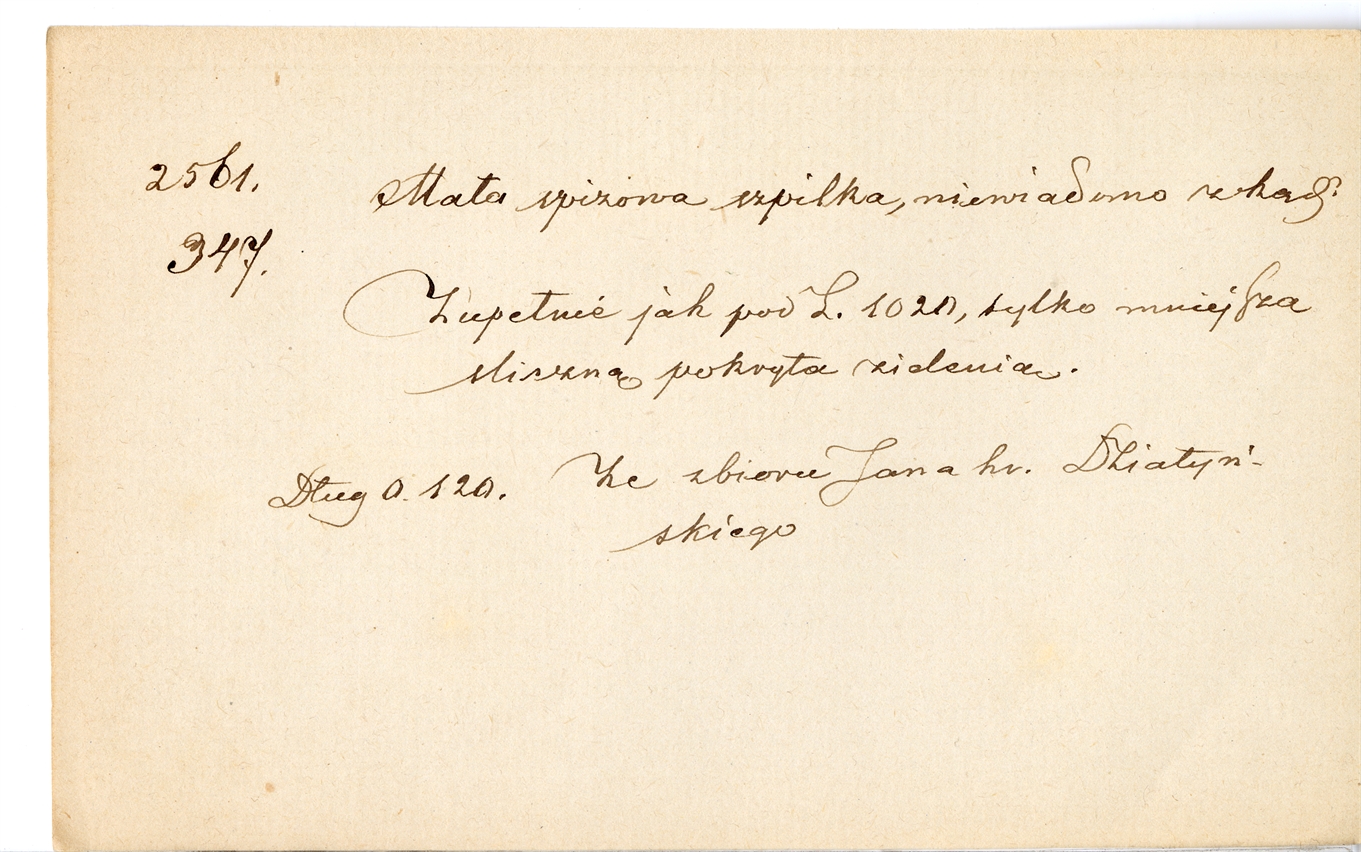 2561.
Mała spiżowa szpilka, niewiadomo zkąd?
347.
Zupełnie jak pod L. 1020, tylko mniejsza
śliczną pokryta zielenią.
Dług 0.120. Ze zbioru Jana hr. Działyń-
skiego